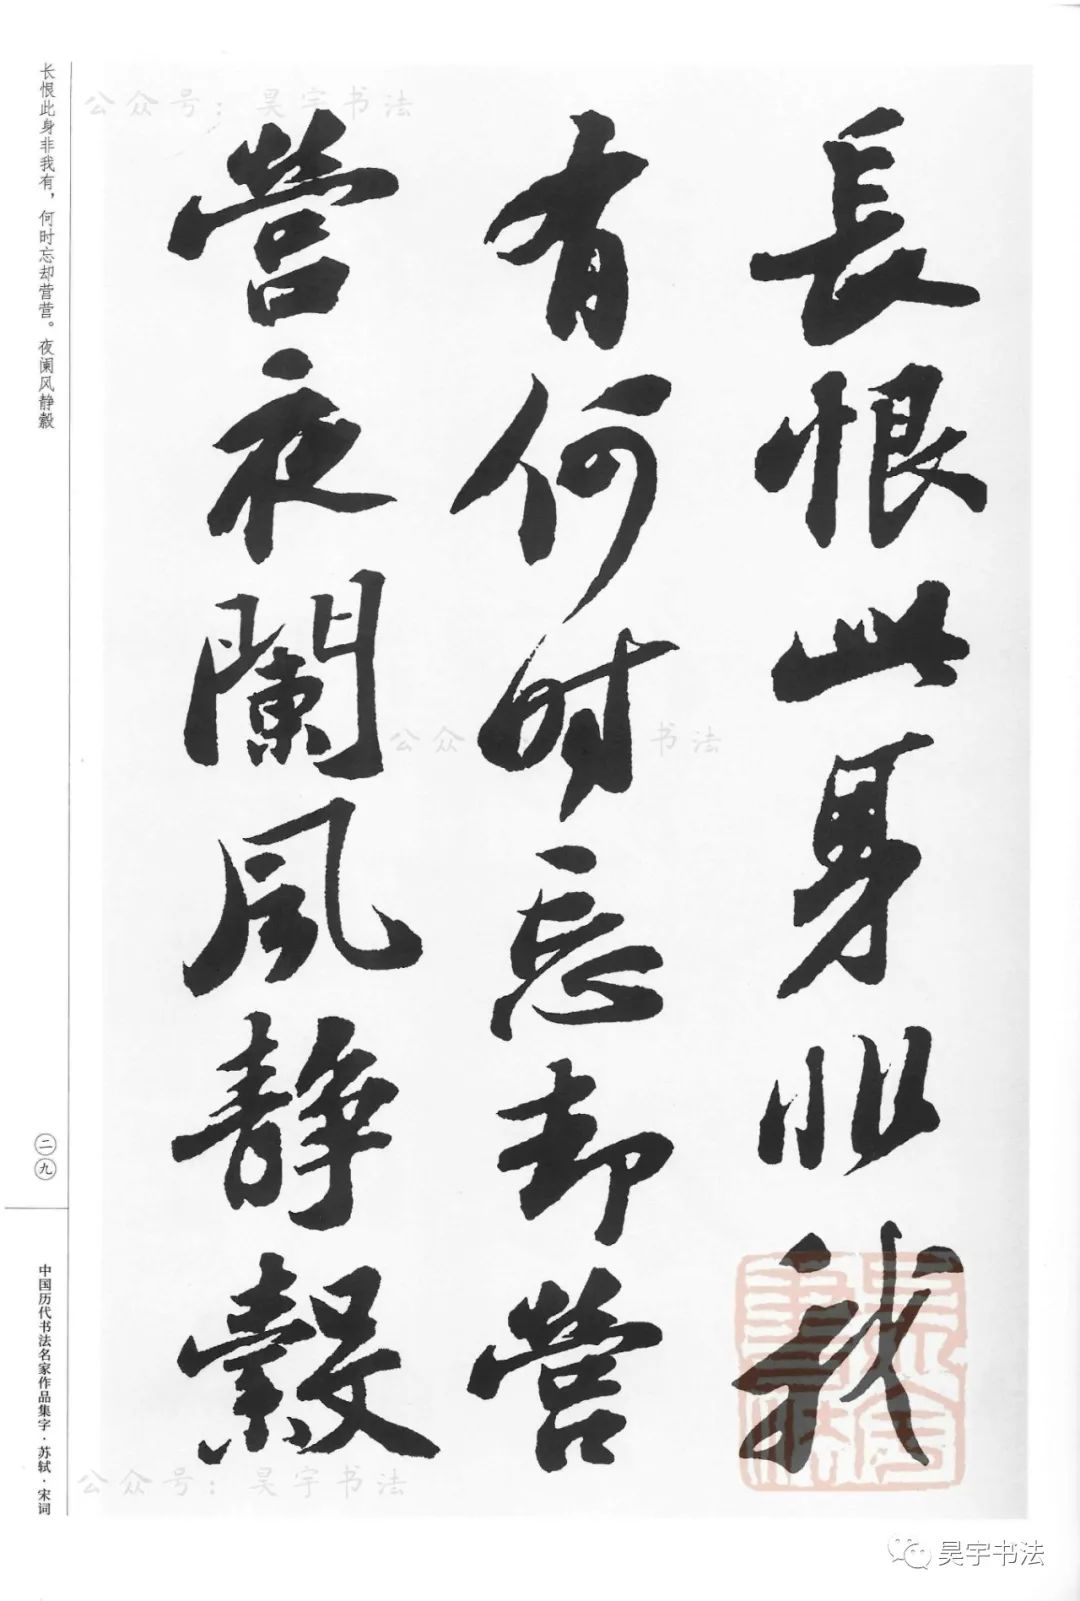 長恨此身非我
有何時忘却營
營夜闌風静縠
长恨此身非我有，何时忘却营营。夜阑风静縠
二九
中国历代书法名家作品集字·苏轼·宋词
公众号：昊宇书法
公众 书法
公众号：昊宇书法
昊宇书法